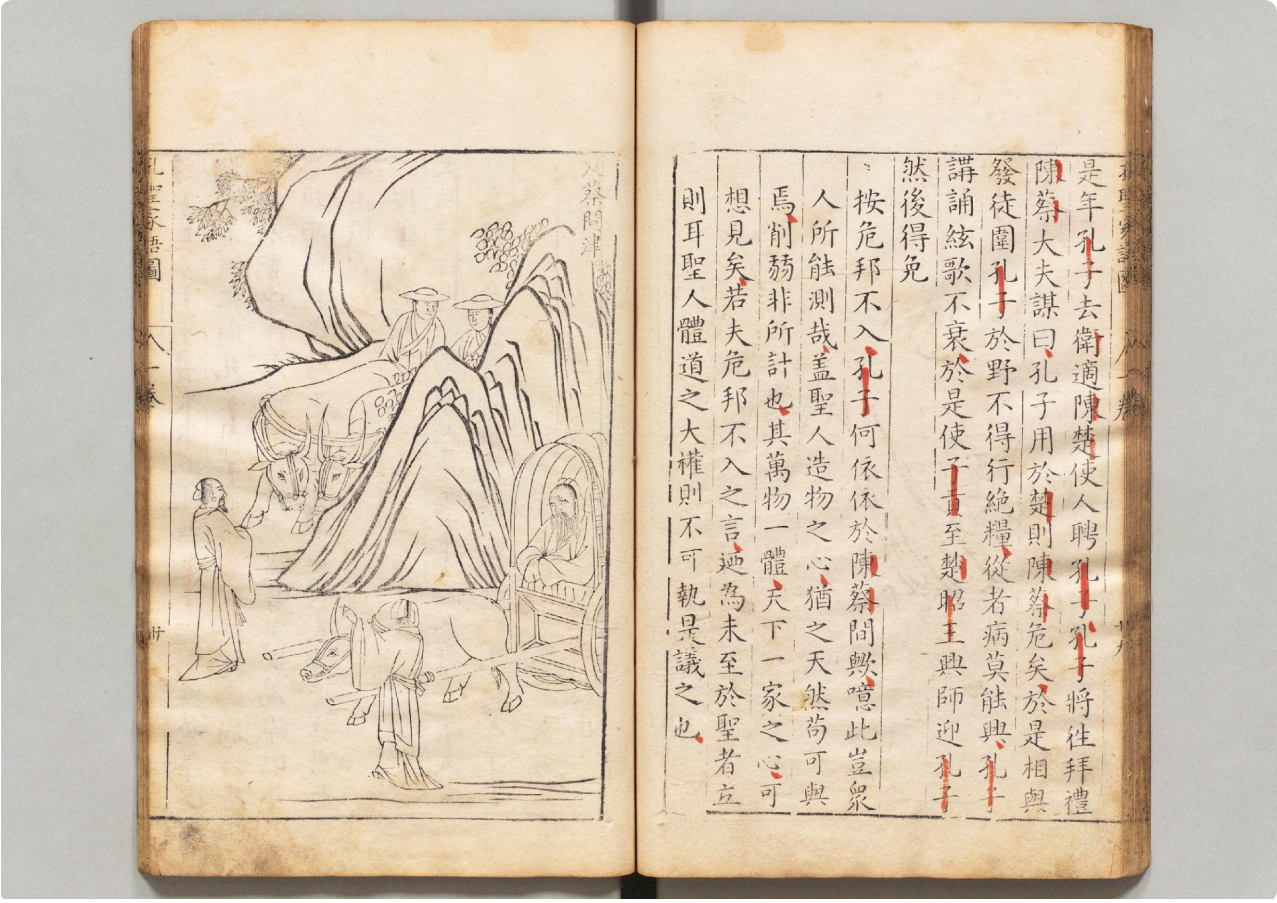 是年孔子去衛適陳楚使人聘孔子孔子將徃拜禮
陳蔡大夫謀曰孔子用於楚則陳蔡危矣於是相與
發徒圍孔子於野不得行絶糧從者病莫能興孔子
講誦絃歌不衰於是使子貢至楚昭王興師迎孔子
然後得免
按危邦不入孔子何依依於陳蔡間歟噫此豈衆
人所能測哉蓋聖人造物之心猶之天然苟可與
焉削弱非所計也其萬物一體天下一家之心可
想見矣若夫危邦不入之言廼為未至於聖者立
則耳聖人體道之大權則不可執是議之也
蔡問津
孔聖家語圖
一卷
廿